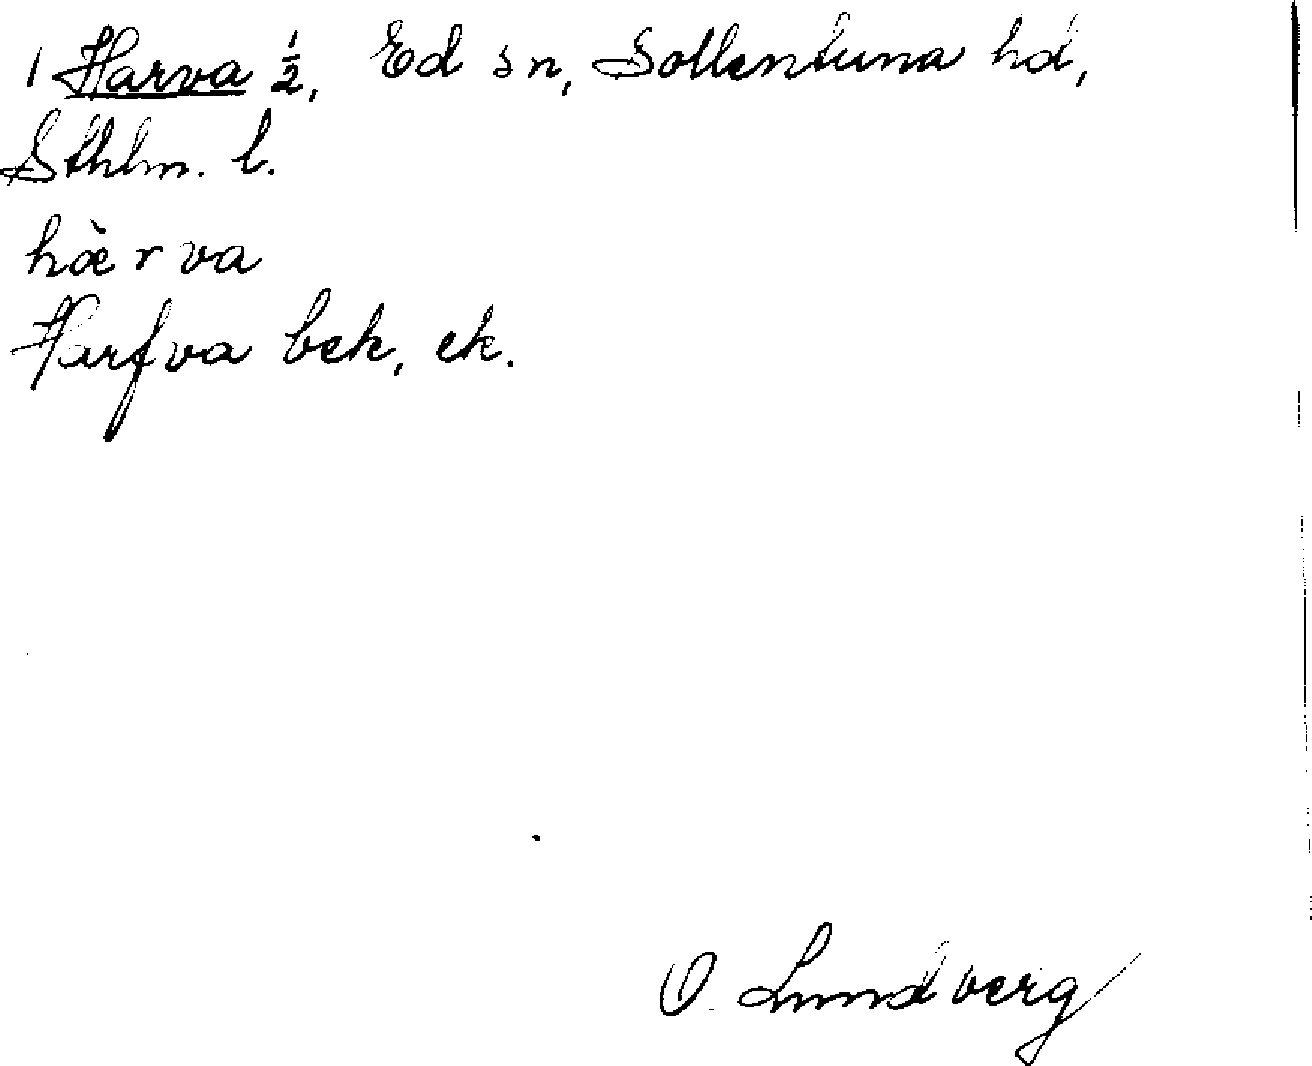 1 Harva ½, Ed sn, Sollentuna hd,
Sthlm. l.
hàrva
Harfva bek, ek.
O. Lundberg